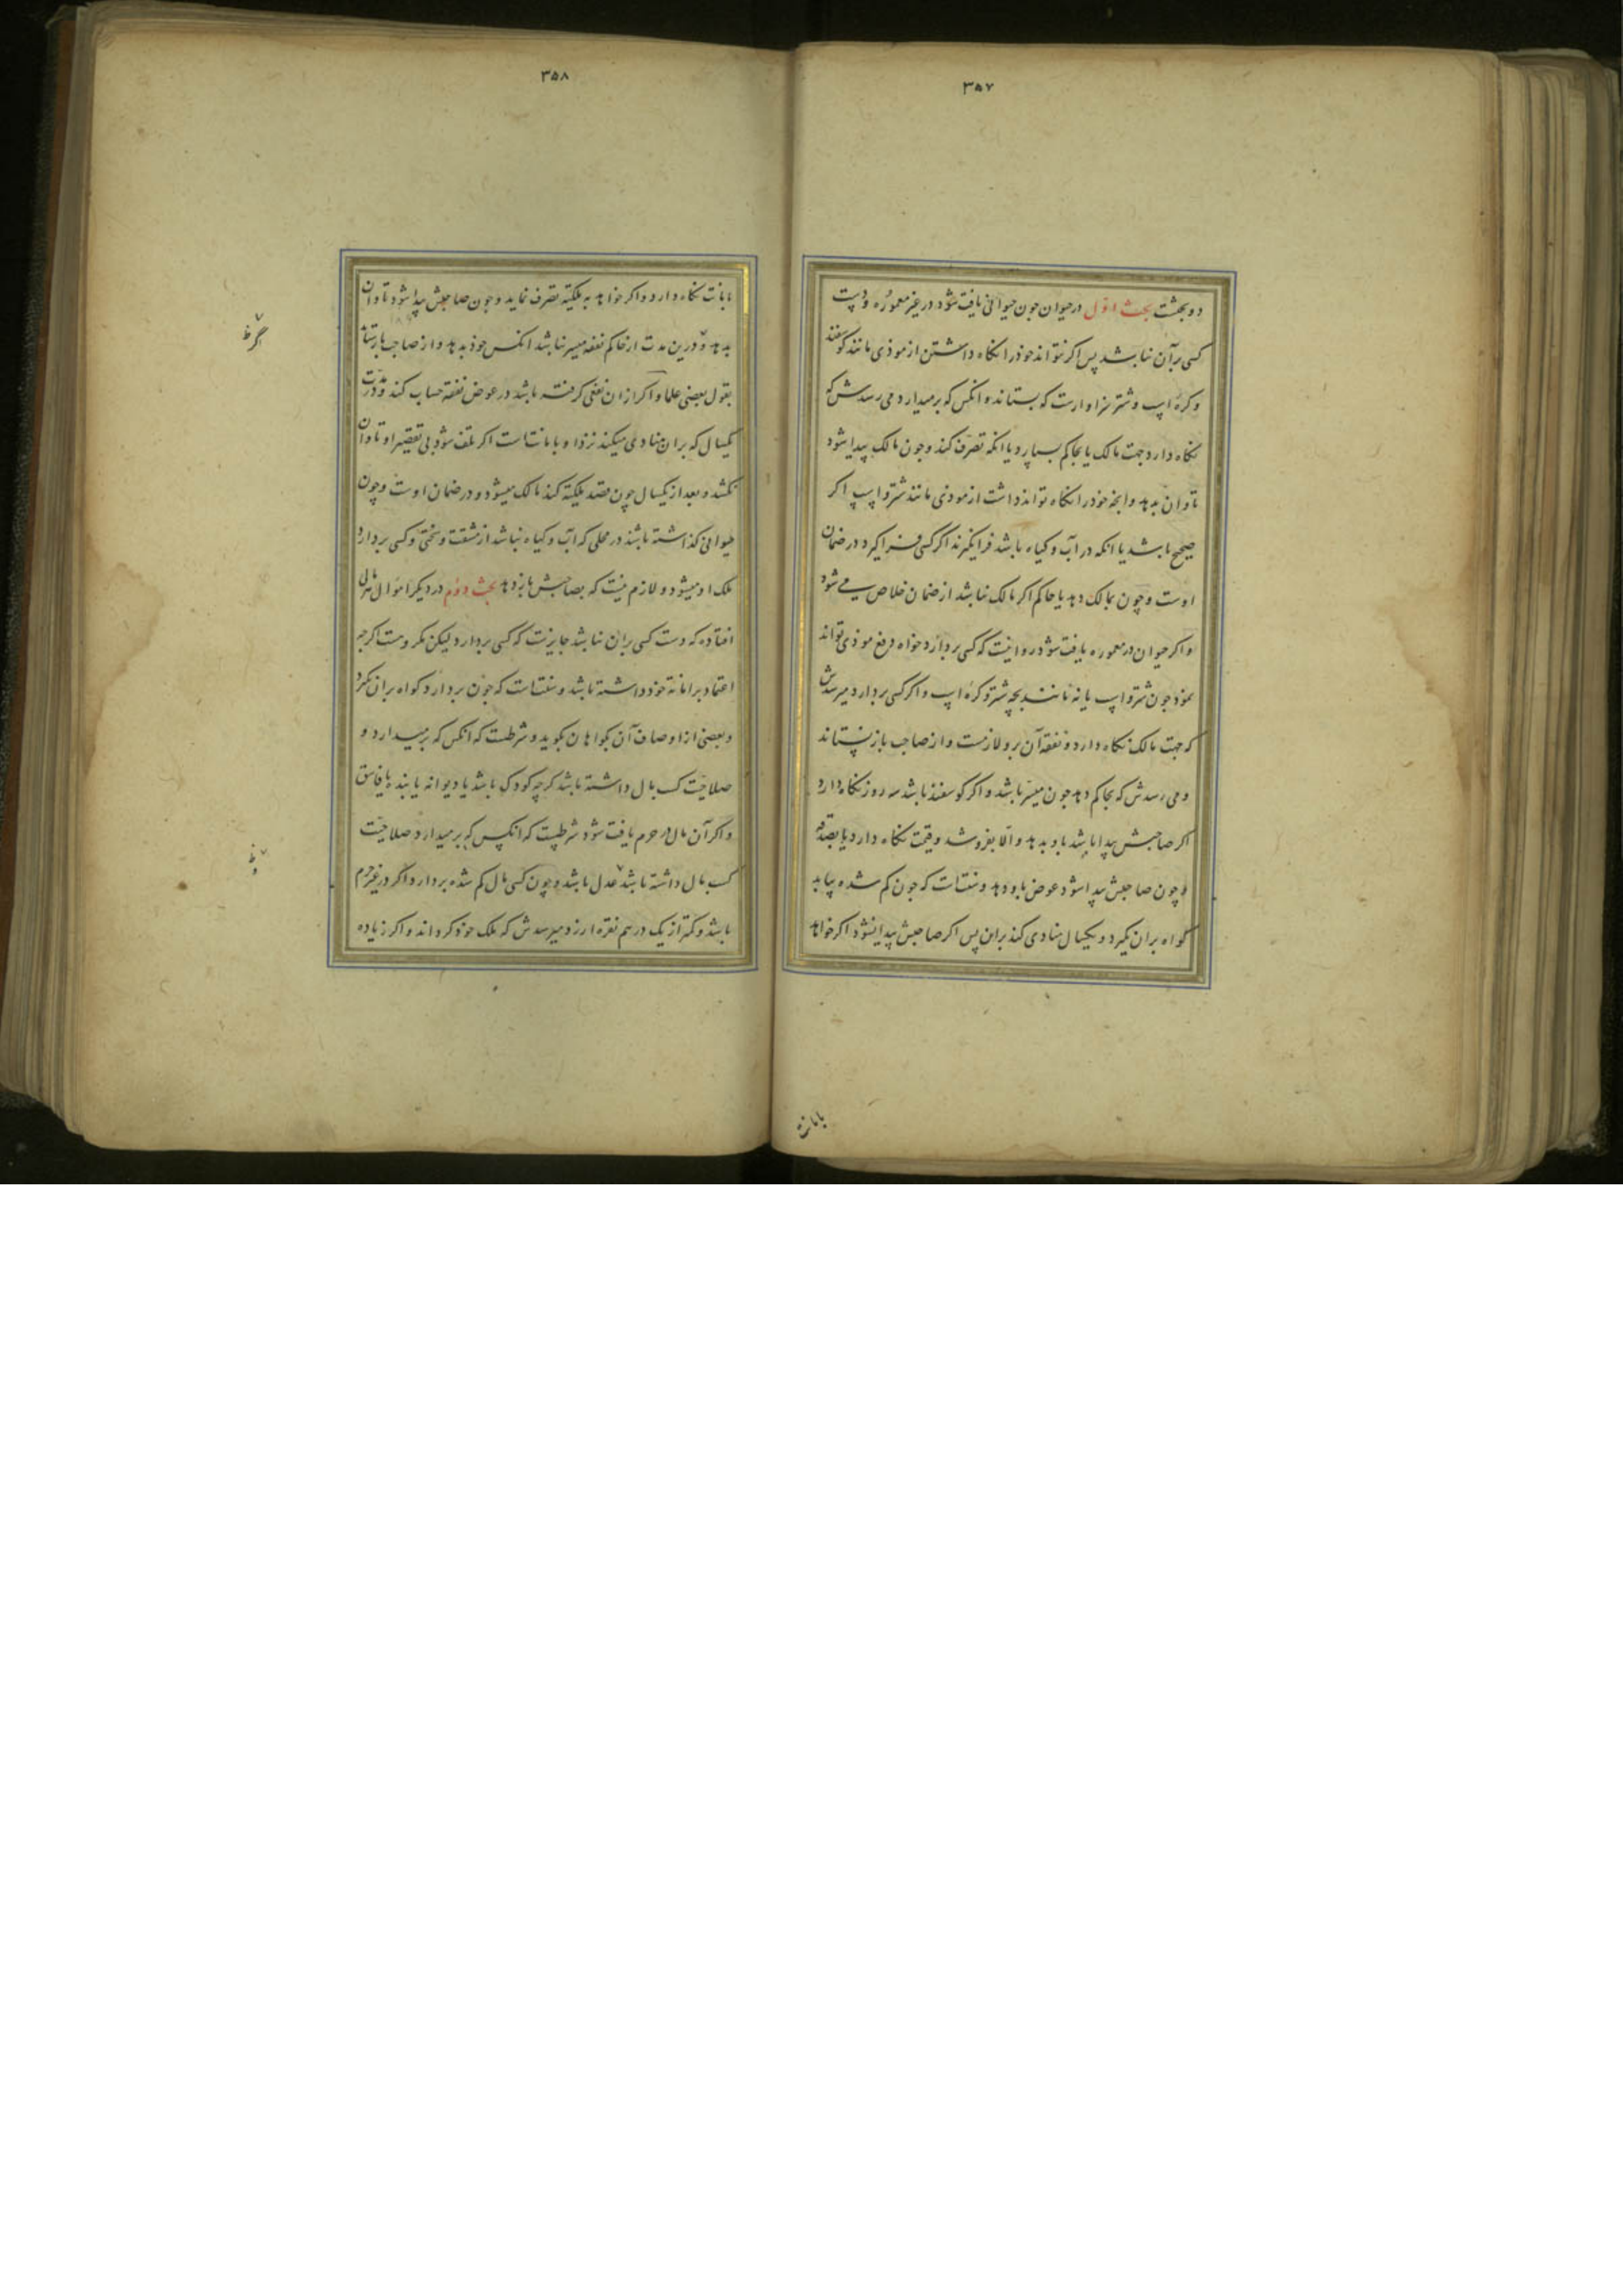 ۳۵۷
دو بحثست بحث اول در حیوان چون حیوانی یافت شود در غیر معموره و دست
کسی بر آن نباشد پس اکر نتواند خود را نکاه داشتن از موذی مانند کوسفند
و کره اسب و شتر سزاوارست که بستاند و انکس که برمیدارد می رسدش که
نکاه دارد جهت مالک یا بحاکم بسپارد یا انکه تصرف کند و چون مالک پیدا شود
تاوان بدهد و انچه خود را نکاه تواند داشت از موذی مانند شتر و اسب اکر
صحیح باشد یا انکه در آب و کیاه باشد فرا نکیرند اکر کسی فرا کیرد در ضمان
اوست و چون بمالک دهد یا حاکم اکر مالک نباشد از ضمان خلاص می شود
و اکر حیوان در معموره یافت شود روا نیست که کسی بردارد خواه دفع موذی تواند
نمود چون شتر و اسب یا نه مانند بچه شتر و کره اسب و اکر کسی بردارد میرسدش
که جهت مالک نکاه دارد و نفقه آن برو لازمست و از صاحب باز نستاند
و می رسدش که بحاکم دهد چون میسر باشد و اکر کوسفند باشد سه روز نکاه دارد
اکر صاحبش پیدا باشد باو بدهد و الا بفروشد و قیمت نکاه دارد یا بصدقه
و چون صاحبش پیدا شود عوض باو دهد و سنتست که چون کم شده بیابد
کواه بران کیرد و یکسال منادی کند بران پس اکر صاحبش پیدا نشود اکر خواهد
۳۵۸
بامانت نکاه دارد و اکر خواهد به ملکیة تصرف نماید و چون صاحبش پیدا شود تاوان
بدهد و درین مدت از حاکم نفقه میسر نباشد انکس خود بدهد و از صاحب بازستاند
بقول بعضی علما و اکر ازان نفعی کرفته باشد در عوض نفقه حساب کند و در مدت
یکسال که بران منادی میکند نزد او بامانتست اکر تلف شود بی تقصیر او تاوان
نکشد و بعد از یکسال چون قصد ملکیة کند مالک میشود و در ضمان اوست و چون
حیوانی کذاشته باشند در محلی که آب و کیاه نباشد از مشقت و سختی و کسی بردارد
ملک او میشود و لازم نیست که بصاحبش باز دهد بحث دوم در دیکر اموال مالی
افتاده که دست کسی بران نباشد جایزست که کسی بردارد لیکن مکروهست اکرچه
اعتماد بر امانة خود داشته باشد و سنتست که چون بردارد کواه بران کیرد
و بعضی از اوصاف آن بکواهان بکوید و شرطست که انکس که برمیدارد و
صلاحیت کسب مال داشته باشد کرچه کودک باشد یا دیوانه یا بنده یا فاسق
و اکر آن مال در حرم یافت شود شرطست که انکس که برمیدارد صلاحیت
کسب مال داشته باشد عدل باشد و چون کسی مال کم شده بردارد اکر در غیر حرم
باشد و کمتر از یک درهم نقره ارزد میرسدش که ملک خود کرداند و اکر زیاده